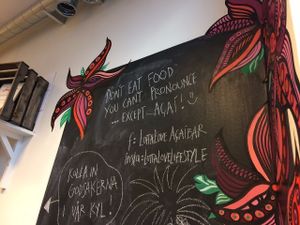 DON'T EAT FOOD
YOU CAN'T PRONOUNCE
... EXCEPT AÇAÍ!
f: LOTTALOVE AÇAIBAR
insta: LOTTALOVELIFESTYLE
KOLLA IN
GODSAKERNA
I VÅR KYL.